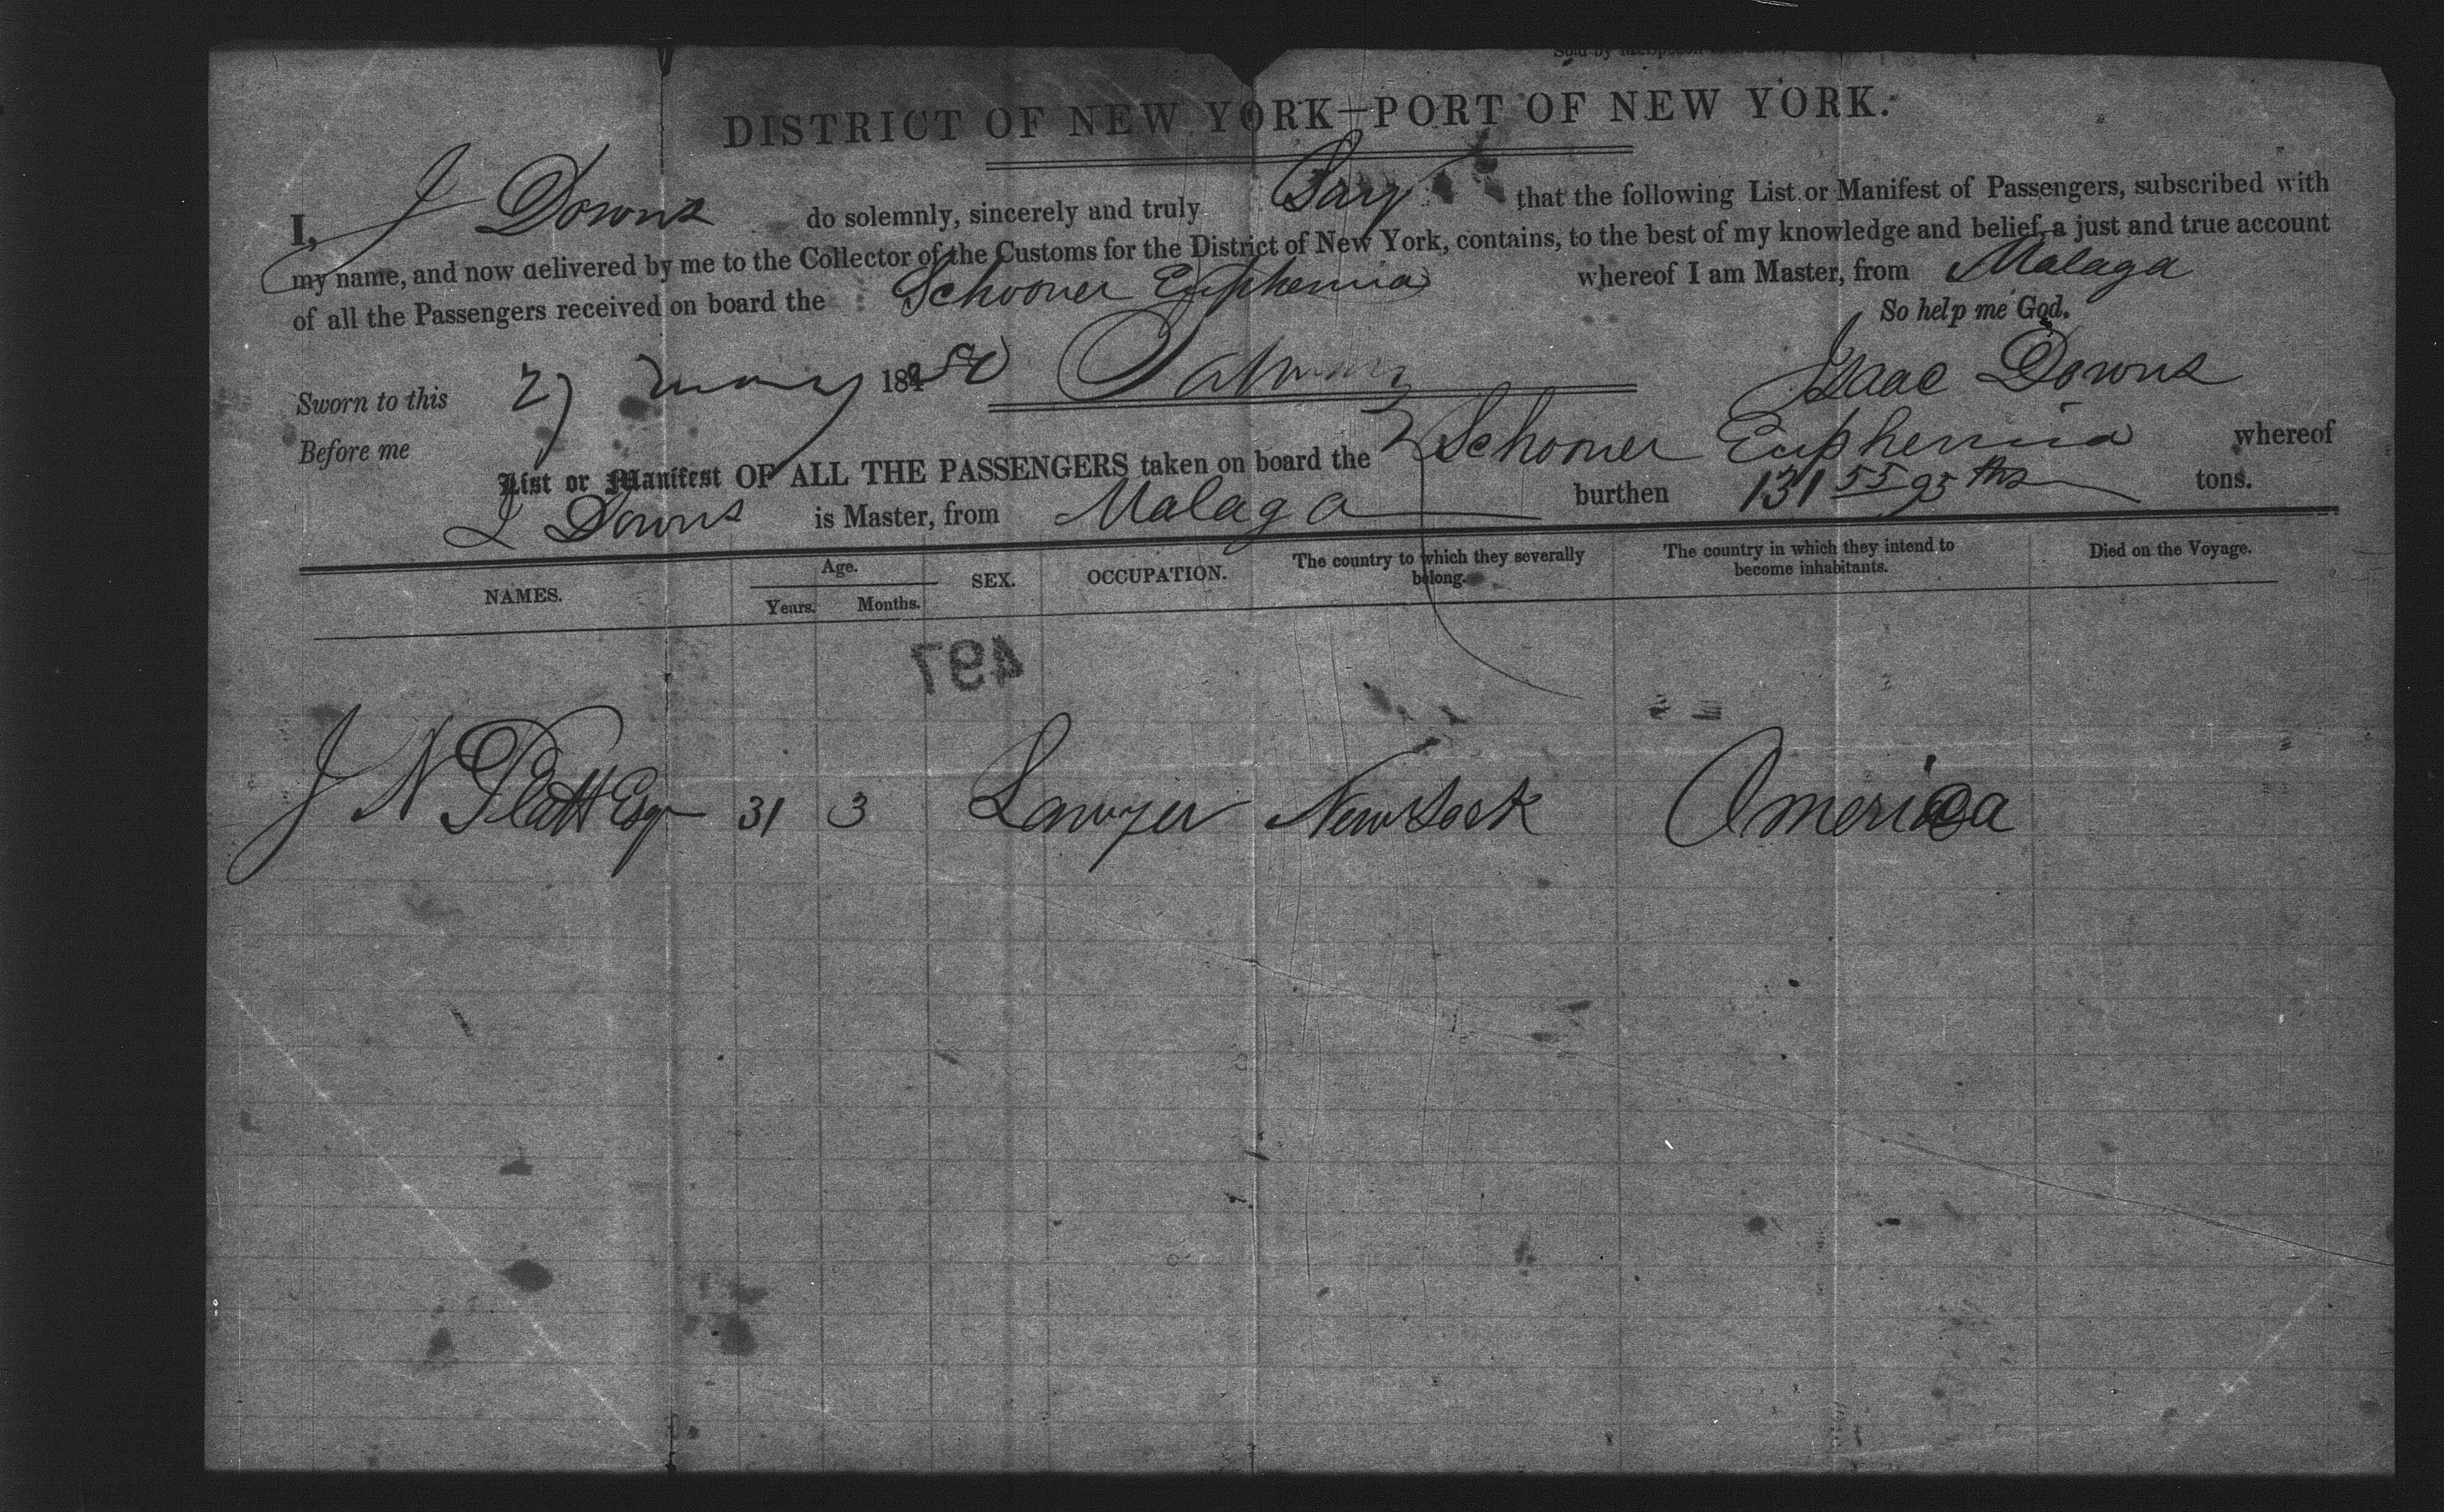 Sold by
DISTRICT OF NEW YORK—PORT OF NEW YORK.
I, J Downs do solemnly, sincerely and truly that the following List or Manifest of Passengers, subscribed with
my name, and now delivered by me to the Collector of the Customs for the District of New York, contains, to the best of my knowledge and belief, a just and true account
of all the Passengers received on board the Schooner Euphemia whereof I am Master, from Malaga
So help me God.
Sworn to this 27 May 1850 Isaac Downs
Before me
List or Manifest OF ALL THE PASSENGERS taken on board the Schooner Euphemia whereof
I Downs is Master, from Malaga burthen 131 55/95 ths tons.
NAMES. Age. Years. Months. SEX. OCCUPATION. The country to which they severally belong. The country in which they intend to become inhabitants. Died on the Voyage.
497
J N Platt Esqr 31 3 Lawyer New York America